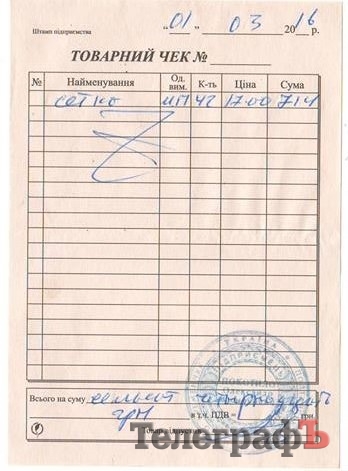 Штамп підприємства "01" 03 2016 р.
ТОВАРНИЙ ЧЕК №
№ Найменування Од. вим. К-ть Ціна Сума
сетка 42 17.00 714
УКРАЇНА
Всього на суму чотирнадцять
грн в т.ч. ПДВ = грн
Товар відпустив
ТелеграфЪ